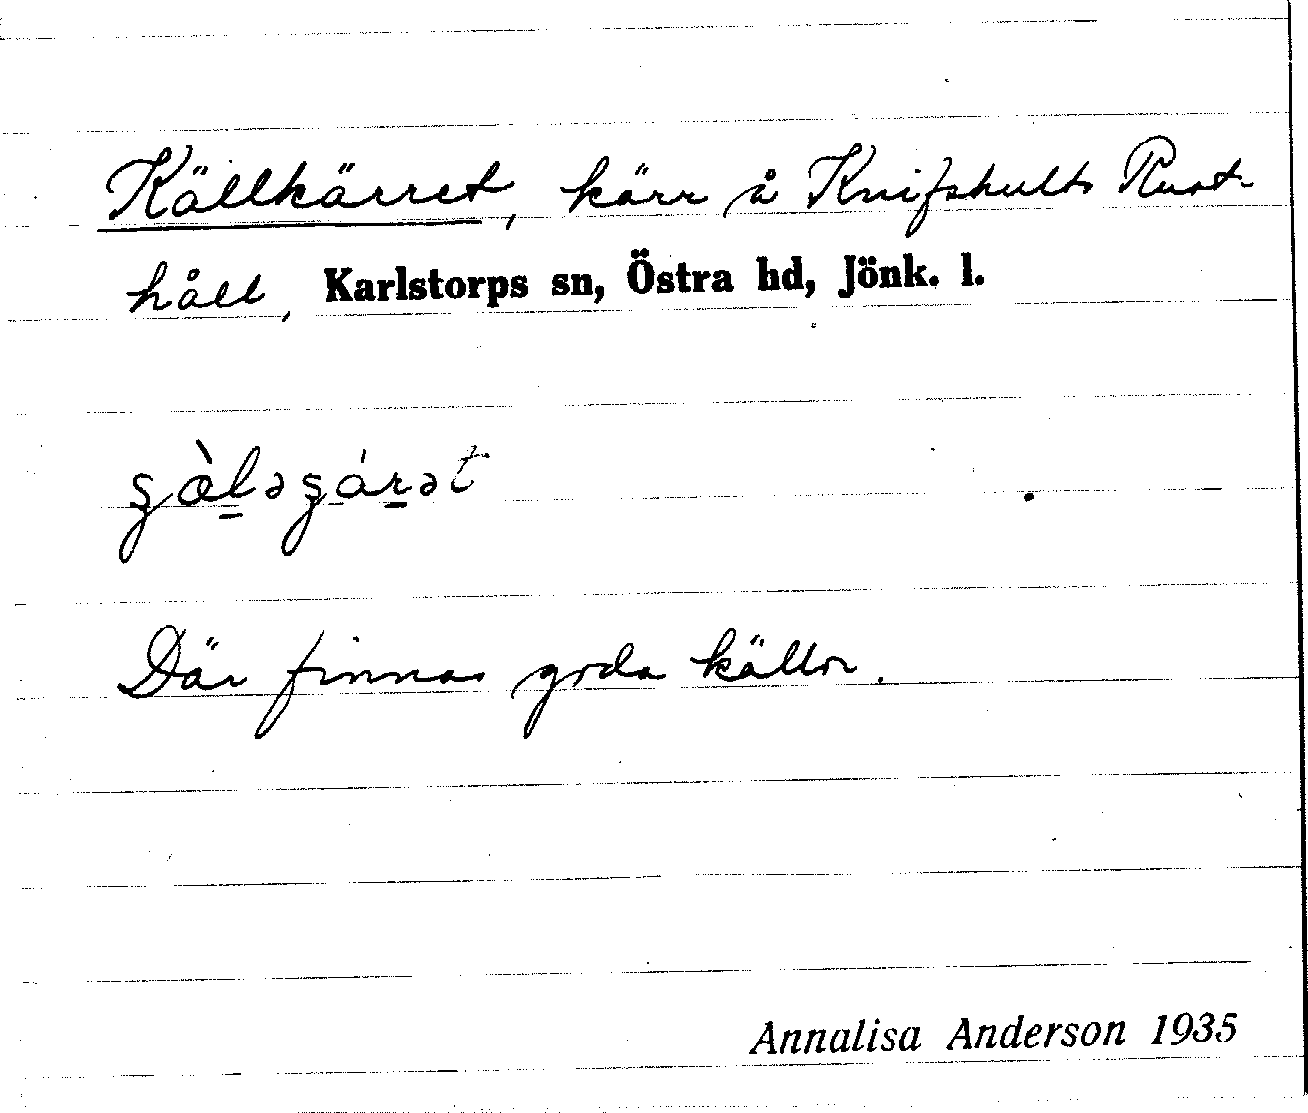 Källkärret, kärr å Knifshults Rust-
håll, Karlstorps sn, Östra hd, Jönk. l.
Där finnas goda källor.
Annalisa Anderson 1935